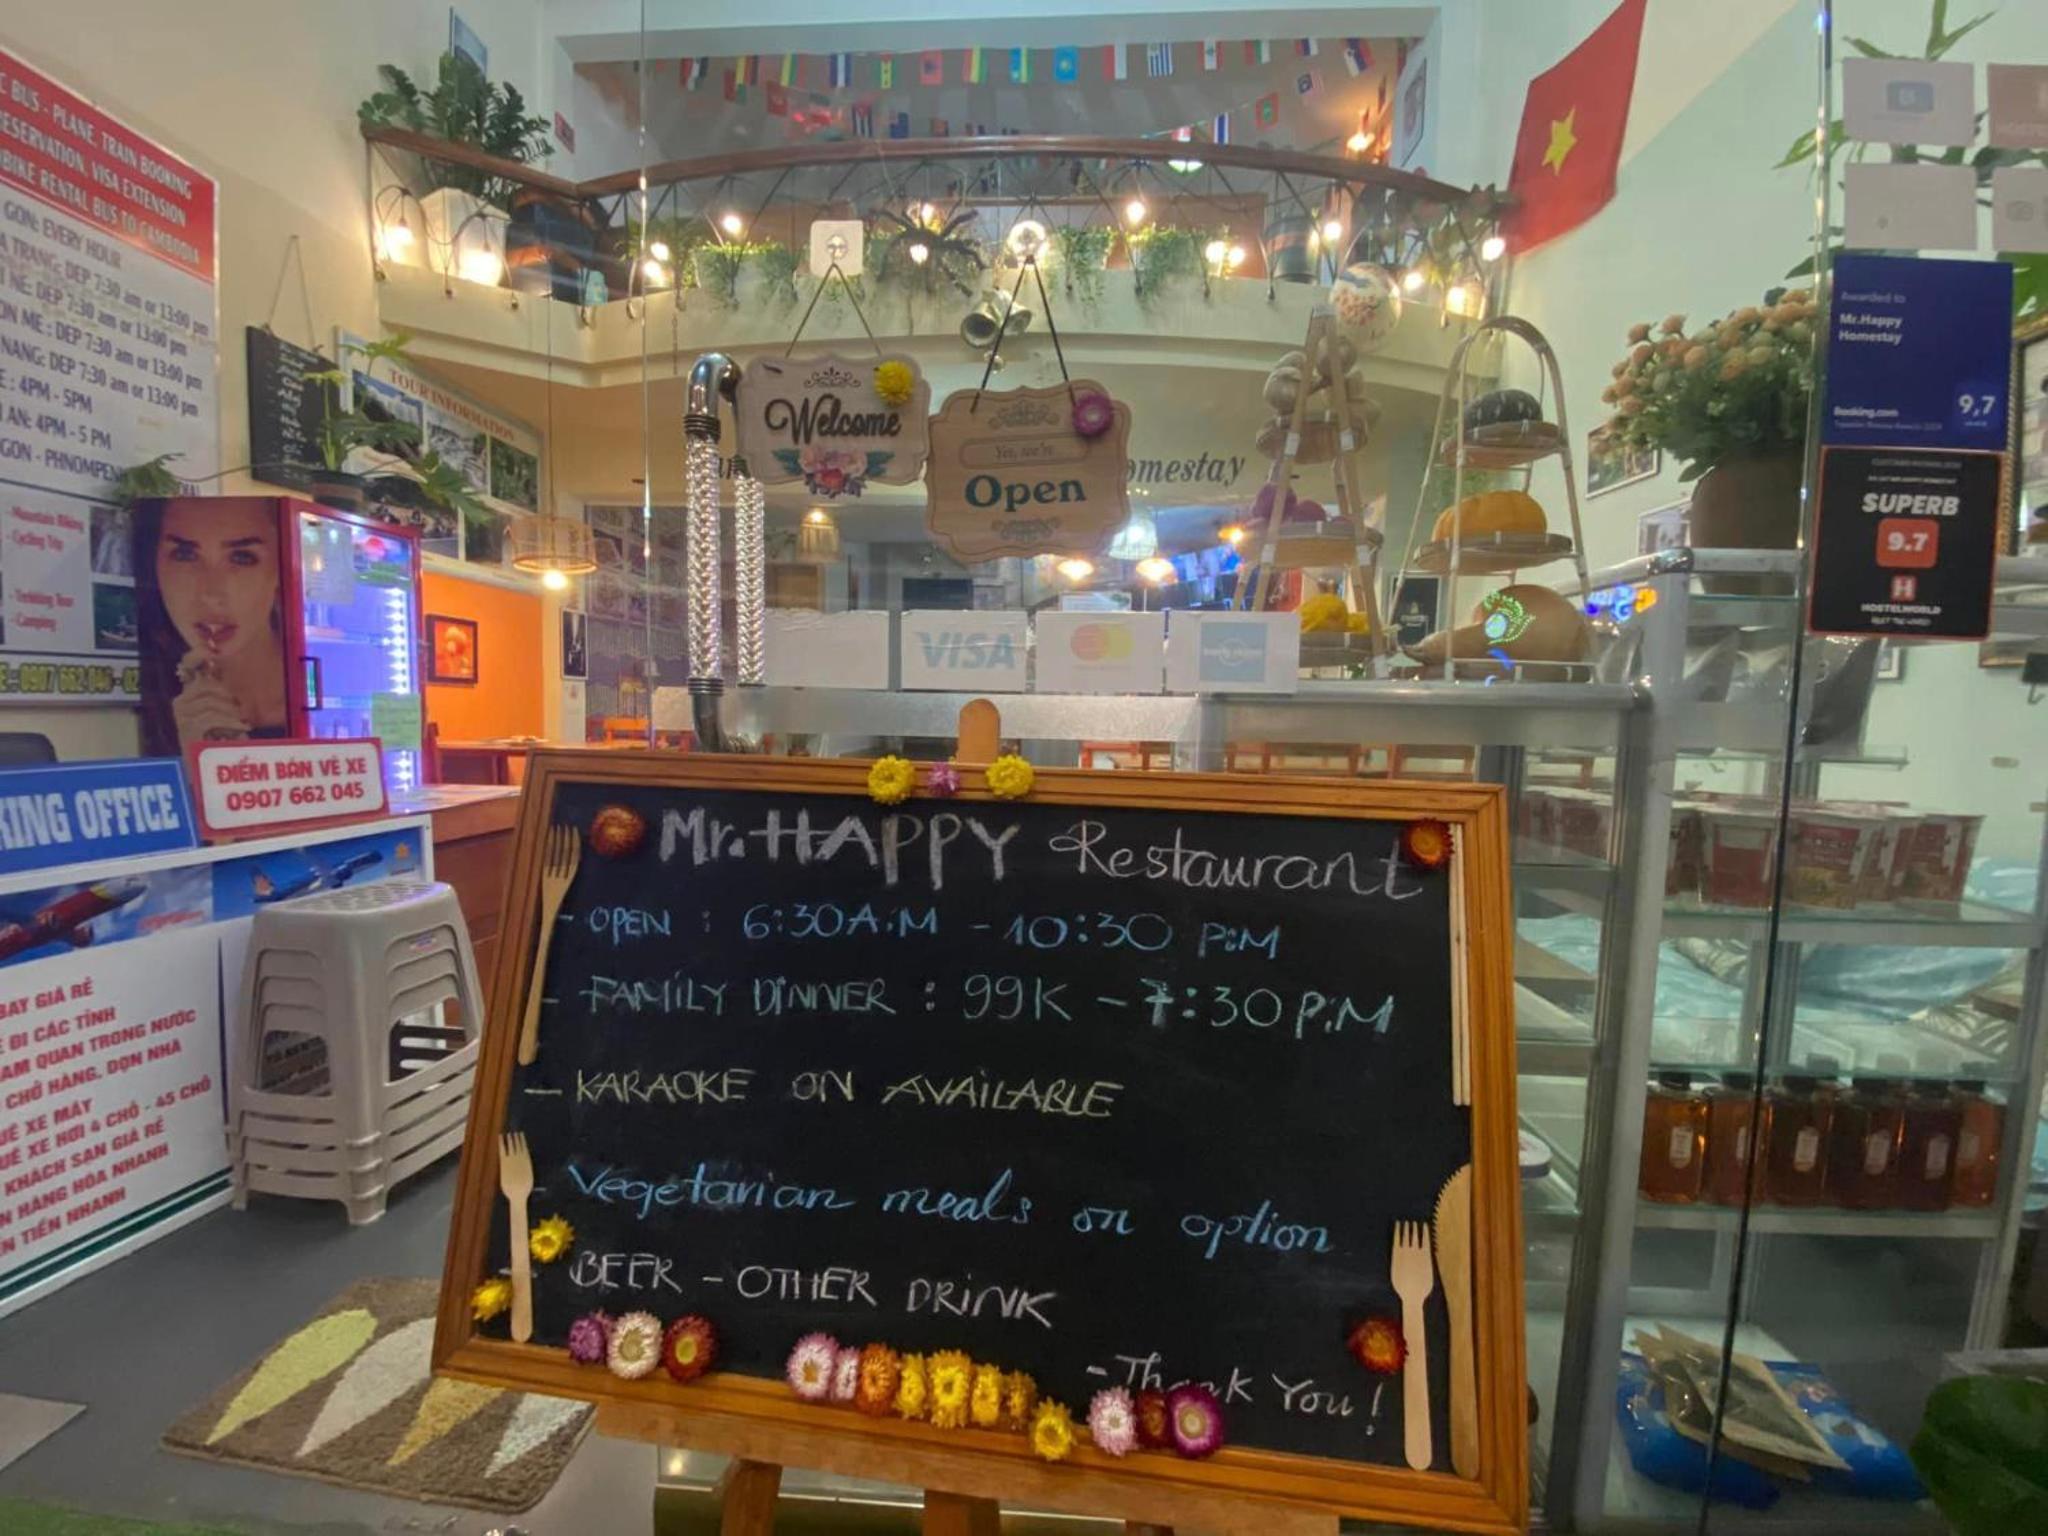 C BUS - PLANE, TRAIN BOOKING
RESERVATION, VISA EXTENSION
BIKE RENTAL BUS TO CAMBODIA
GON: EVERY HOUR
A TRANG: DEP 7:30 am or 13:00 pm
I NE: DEP 7:30 am or 13:00 pm
ON ME : DEP 7:30 am or 13:00 pm
NANG: DEP 7:30 am or 13:00 pm
E : 4PM - 5PM
I AN: 4PM - 5 PM
GON - PHNOMPENH
- Mountain Biking
- Cycling Trip
- Trekking Tour
- Camping
TOUR INFORMATION
Welcome
Yes, we're
Open
omestay
VISA
Awarded to
Mr.Happy
Homestay
Booking.com
9,7
SUPERB
9.7
H
HOSTELWORLD
KING OFFICE
ĐIỂM BÁN VÉ XE
0907 662 045
BAY GIÁ RẺ
E ĐI CÁC TỈNH
AM QUAN TRONG NƯỚC
CHỞ HÀNG, DỌN NHÀ
UÊ XE MÁY
UÊ XE HƠI 4 CHỖ - 45 CHỖ
KHÁCH SẠN GIÁ RẺ
N HÀNG HÓA NHANH
N TIỀN NHANH
Mr.HAPPY Restaurant
- OPEN : 6:30A.M - 10:30 P:M
- FAMILY DINNER : 99K - 7:30 P.M
- KARAOKE ON AVAILABLE
- Vegetarian meals on option
- BEER - OTHER DRINK
- Thank You!